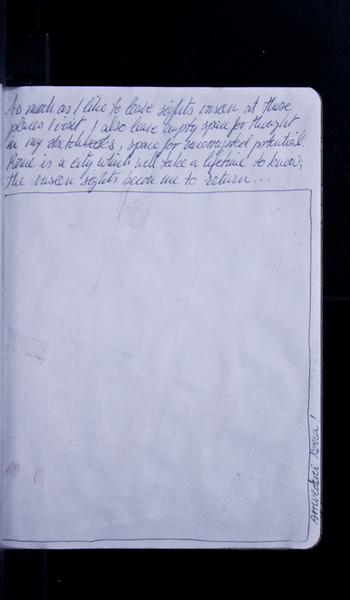 As much as I like to leave sights unseen at these
places I visit, I also leave empty space for thought
in my sketchbooks, space for uncorrupted potential.
Rome is a city which will take a lifetime to know,
the unseen sights beckon me to return...
Arrivederci Roma!